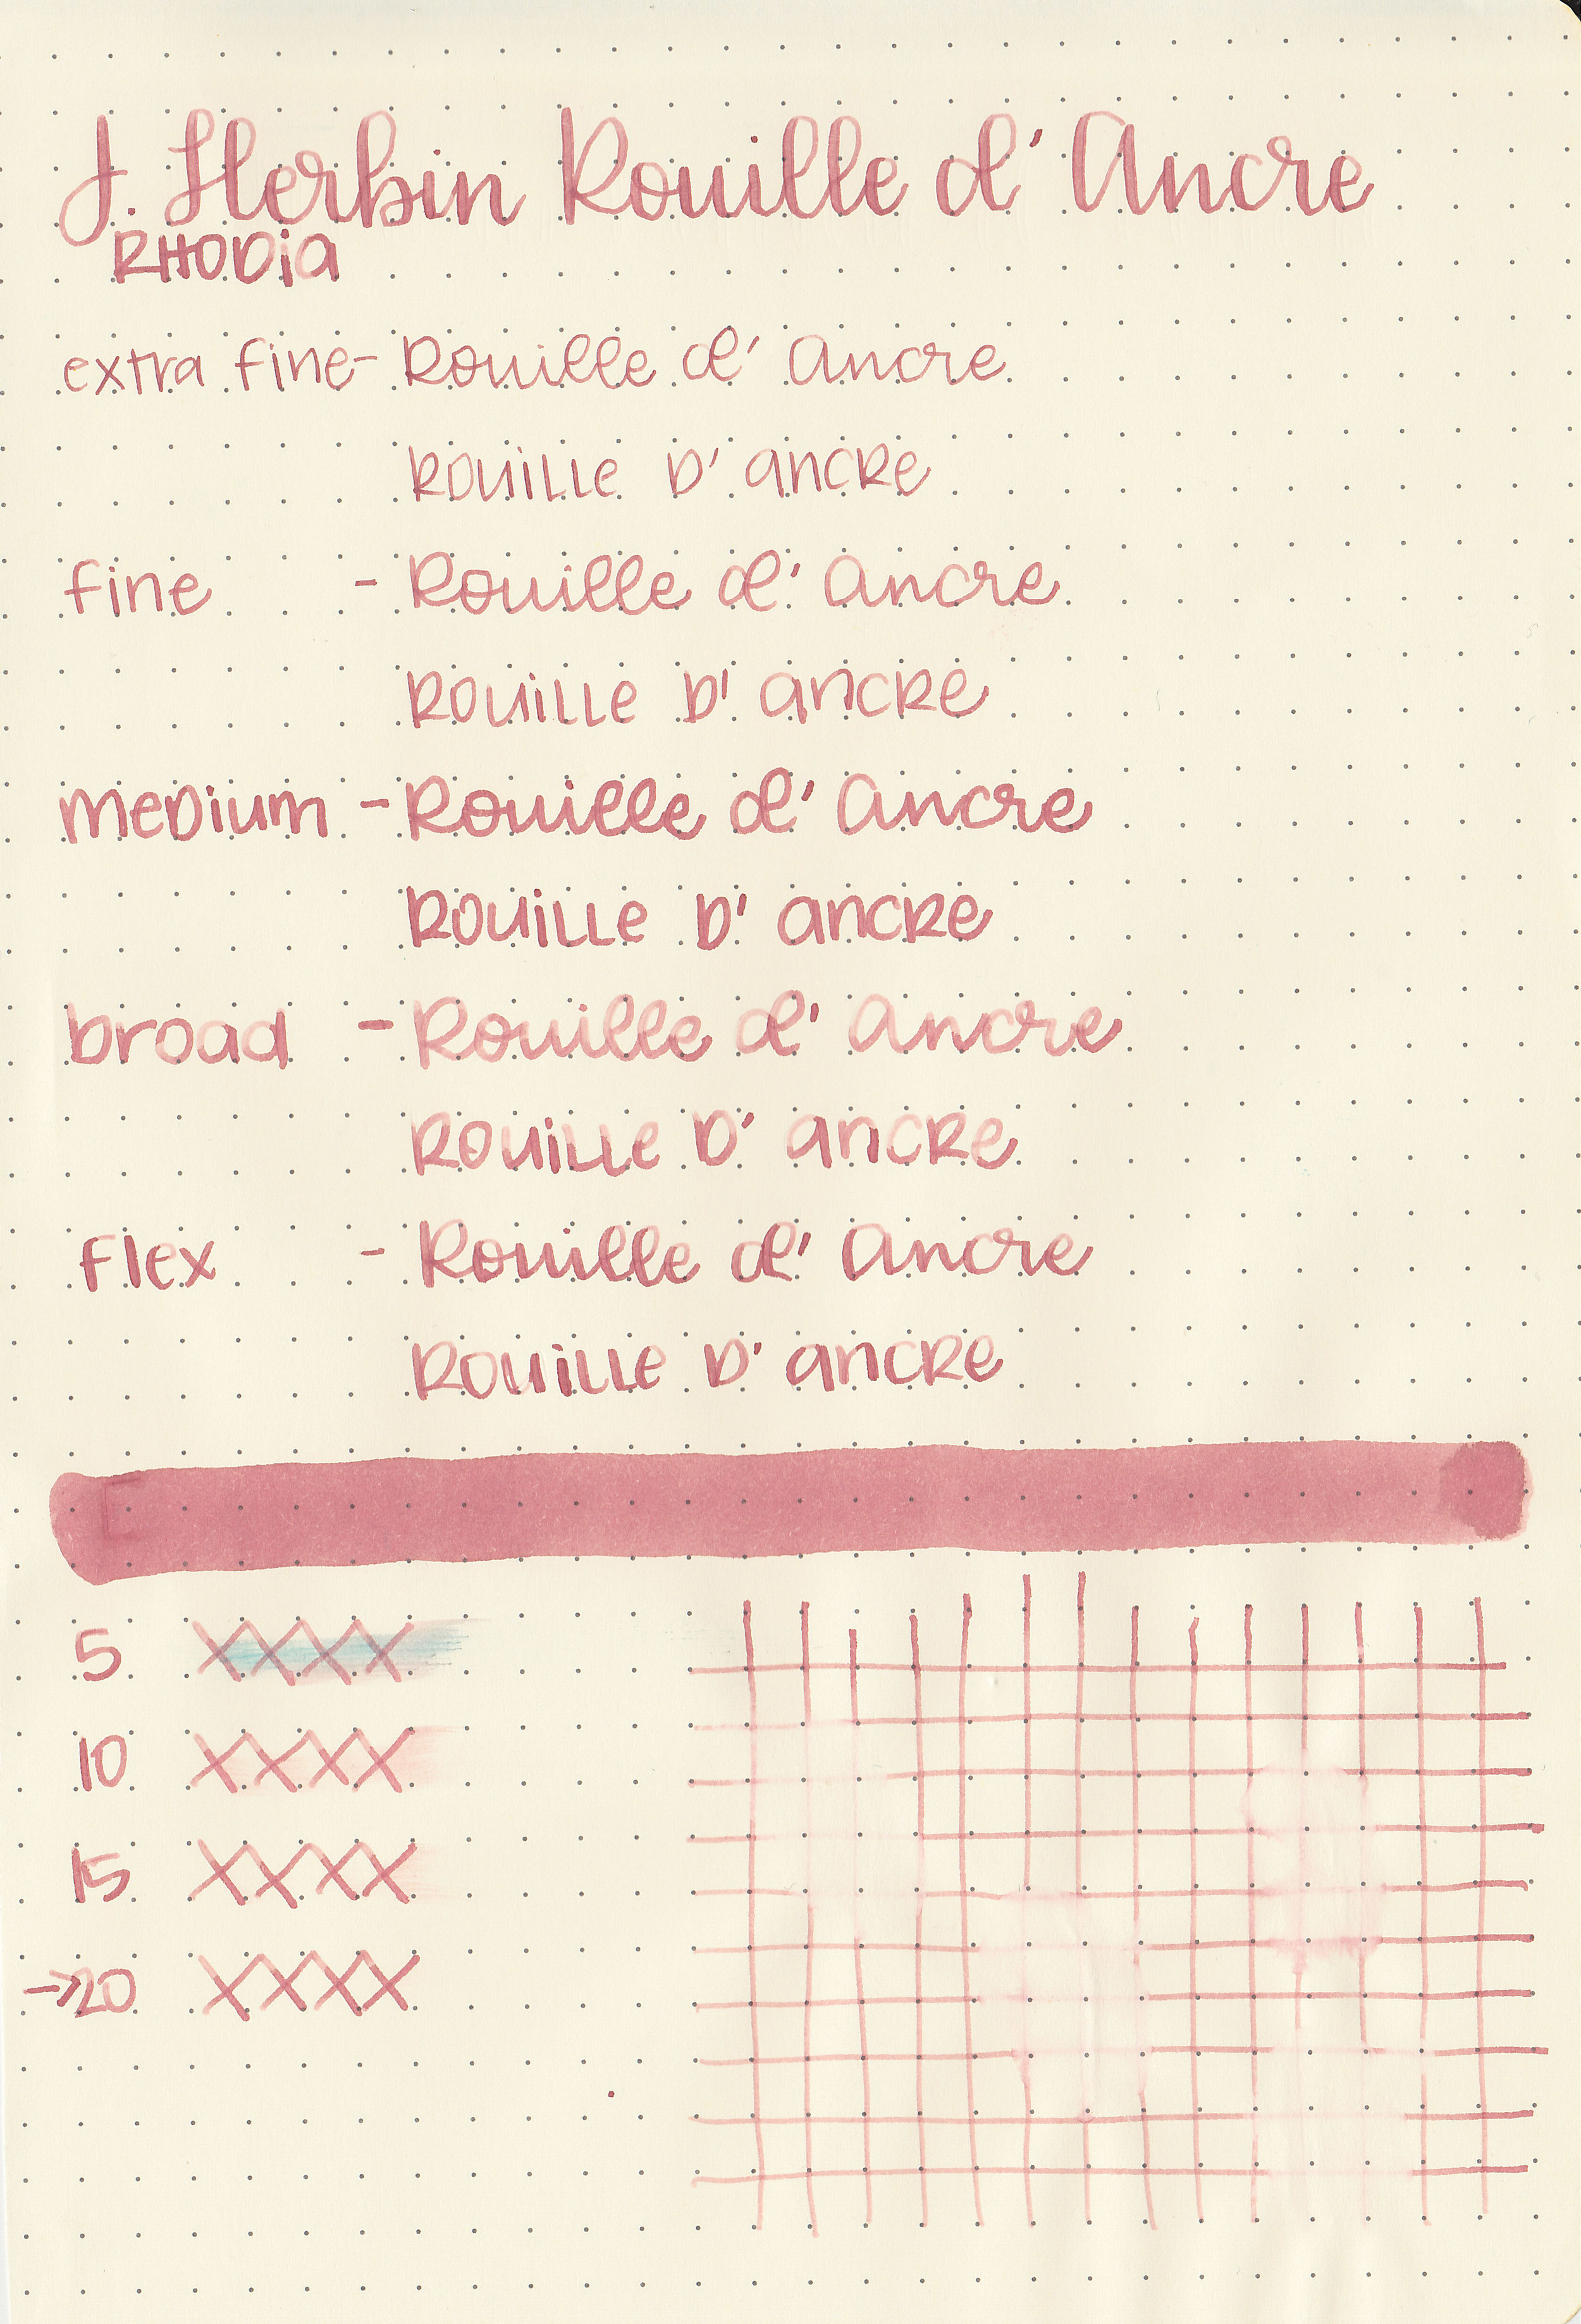 J. Herbin Rouille d' Ancre
RHODiA
extra fine - Rouille d' Ancre
ROUiLLe D' ancRe
fine - Rouille d' Ancre
ROUiLLe D' ancRe
meDium - Rouille d' Ancre
ROUiLLe D' ancRe
broad - Rouille d' Ancre
ROUiLLe D' ancRe
flex - Rouille d' Ancre
ROUiLLe D' ancRe
5 XXXX
10 XXXX
15 XXXX
→20 XXXX